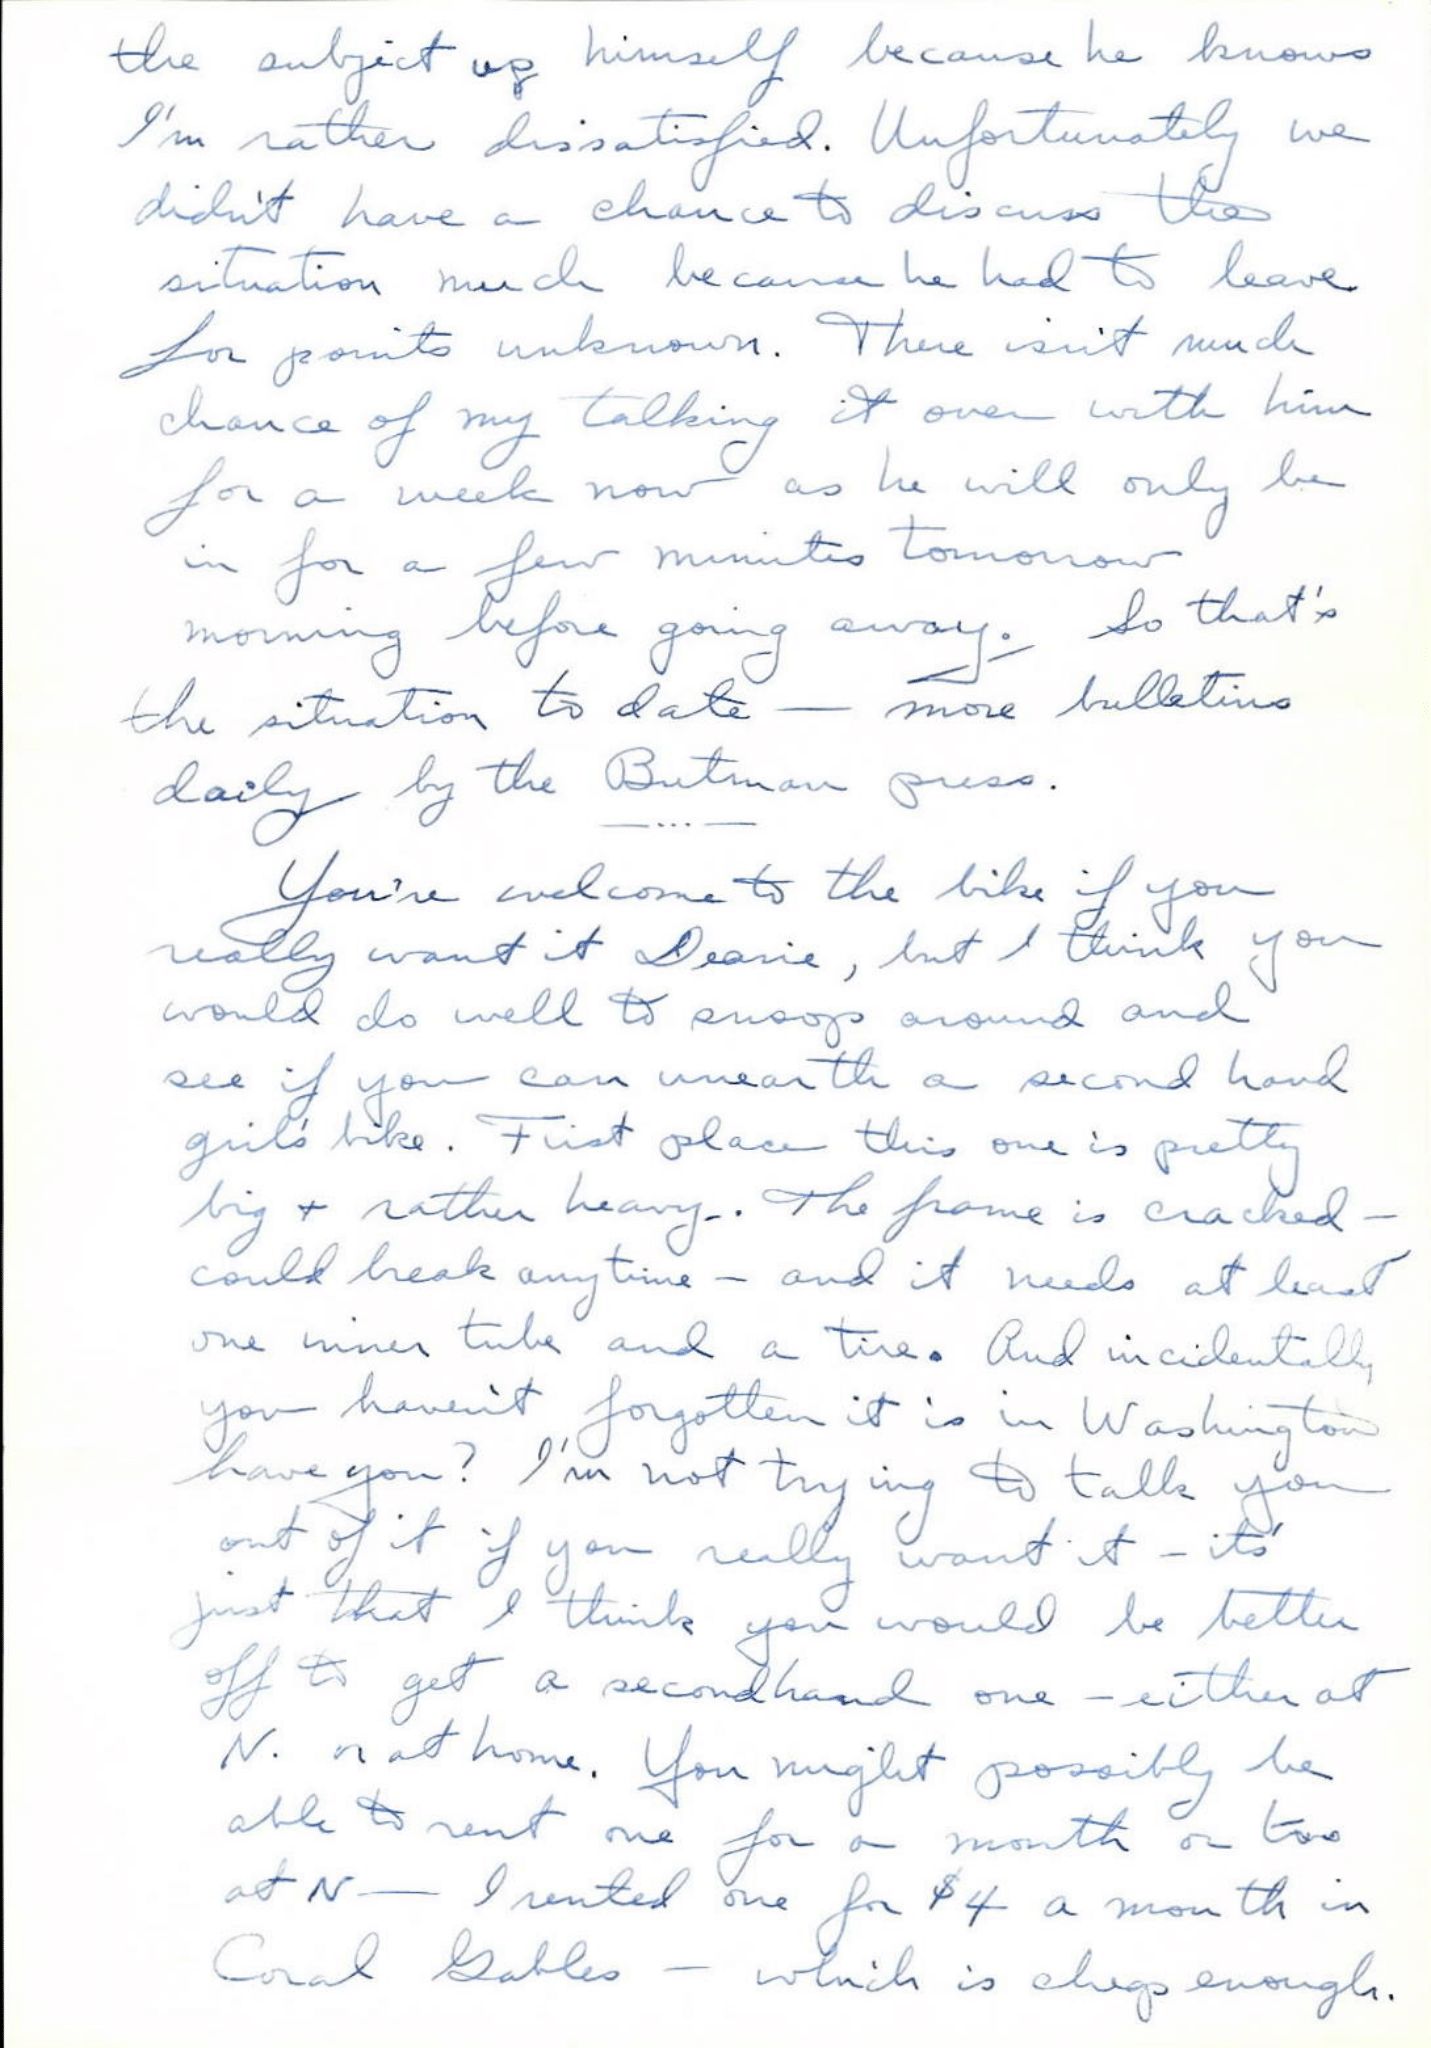 the subject up himself because he knows
I'm rather dissatisfied. Unfortunately we
didn't have a chance to discuss the
situation much because he had to leave
for points unknown. There isn't much
chance of my talking it over with him
for a week now as he will only be
in for a few minutes tomorrow
morning before going away. So that's
the situation to date — more bulletins
daily by the Butman press.
— ... —
You're welcome to the bike if you
really want it Dearie, but I think you
would do well to snoop around and
see if you can unearth a second hand
girl's bike. First place this one is pretty
big + rather heavy. The frame is cracked –
could break anytime – and it needs at least
one inner tube and a tire. And incidentally
you haven't forgotten it is in Washington
have you? I'm not trying to talk you
out of it if you really want it – it's
just that I think you would be better
off to get a secondhand one – either at
N. or at home. You might possibly be
able to rent one for a month or two
at N — I rented one for $4 a month in
Coral Gables – which is cheap enough.